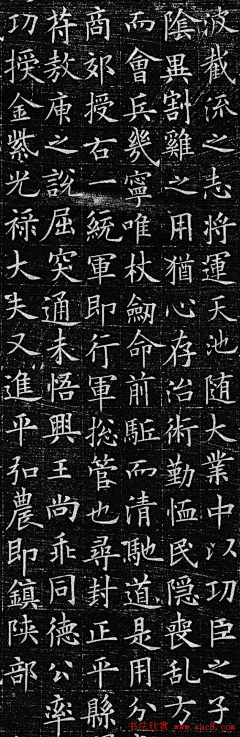 波截流之志将運天池随大業中以功臣之子
陰異割雞之用猶心存治術勤恤民隱喪乱方
而會兵㡬寧唯杖劒命前駈而清馳道是用分
商郊授右一統軍即行軍揔管也尋封正平縣
苻敖庾之說屈突通未悟興王尚乖同德公率
功授金紫光禄大夫又進平弘農即鎮陝部
书法欣赏
www.yac8.com